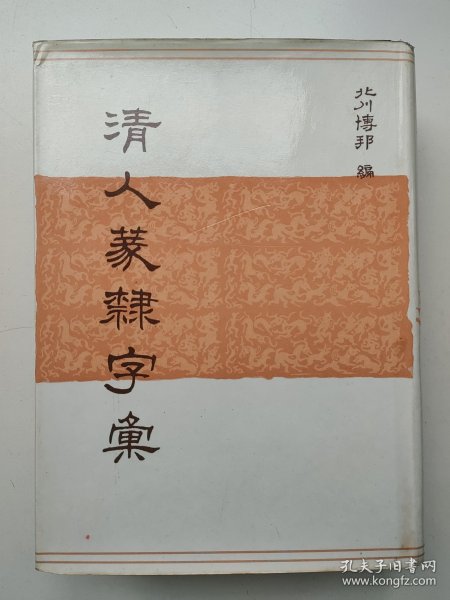 北川博邦 編
清人篆隸字彙
孔夫子旧书网
www.kongfz.com